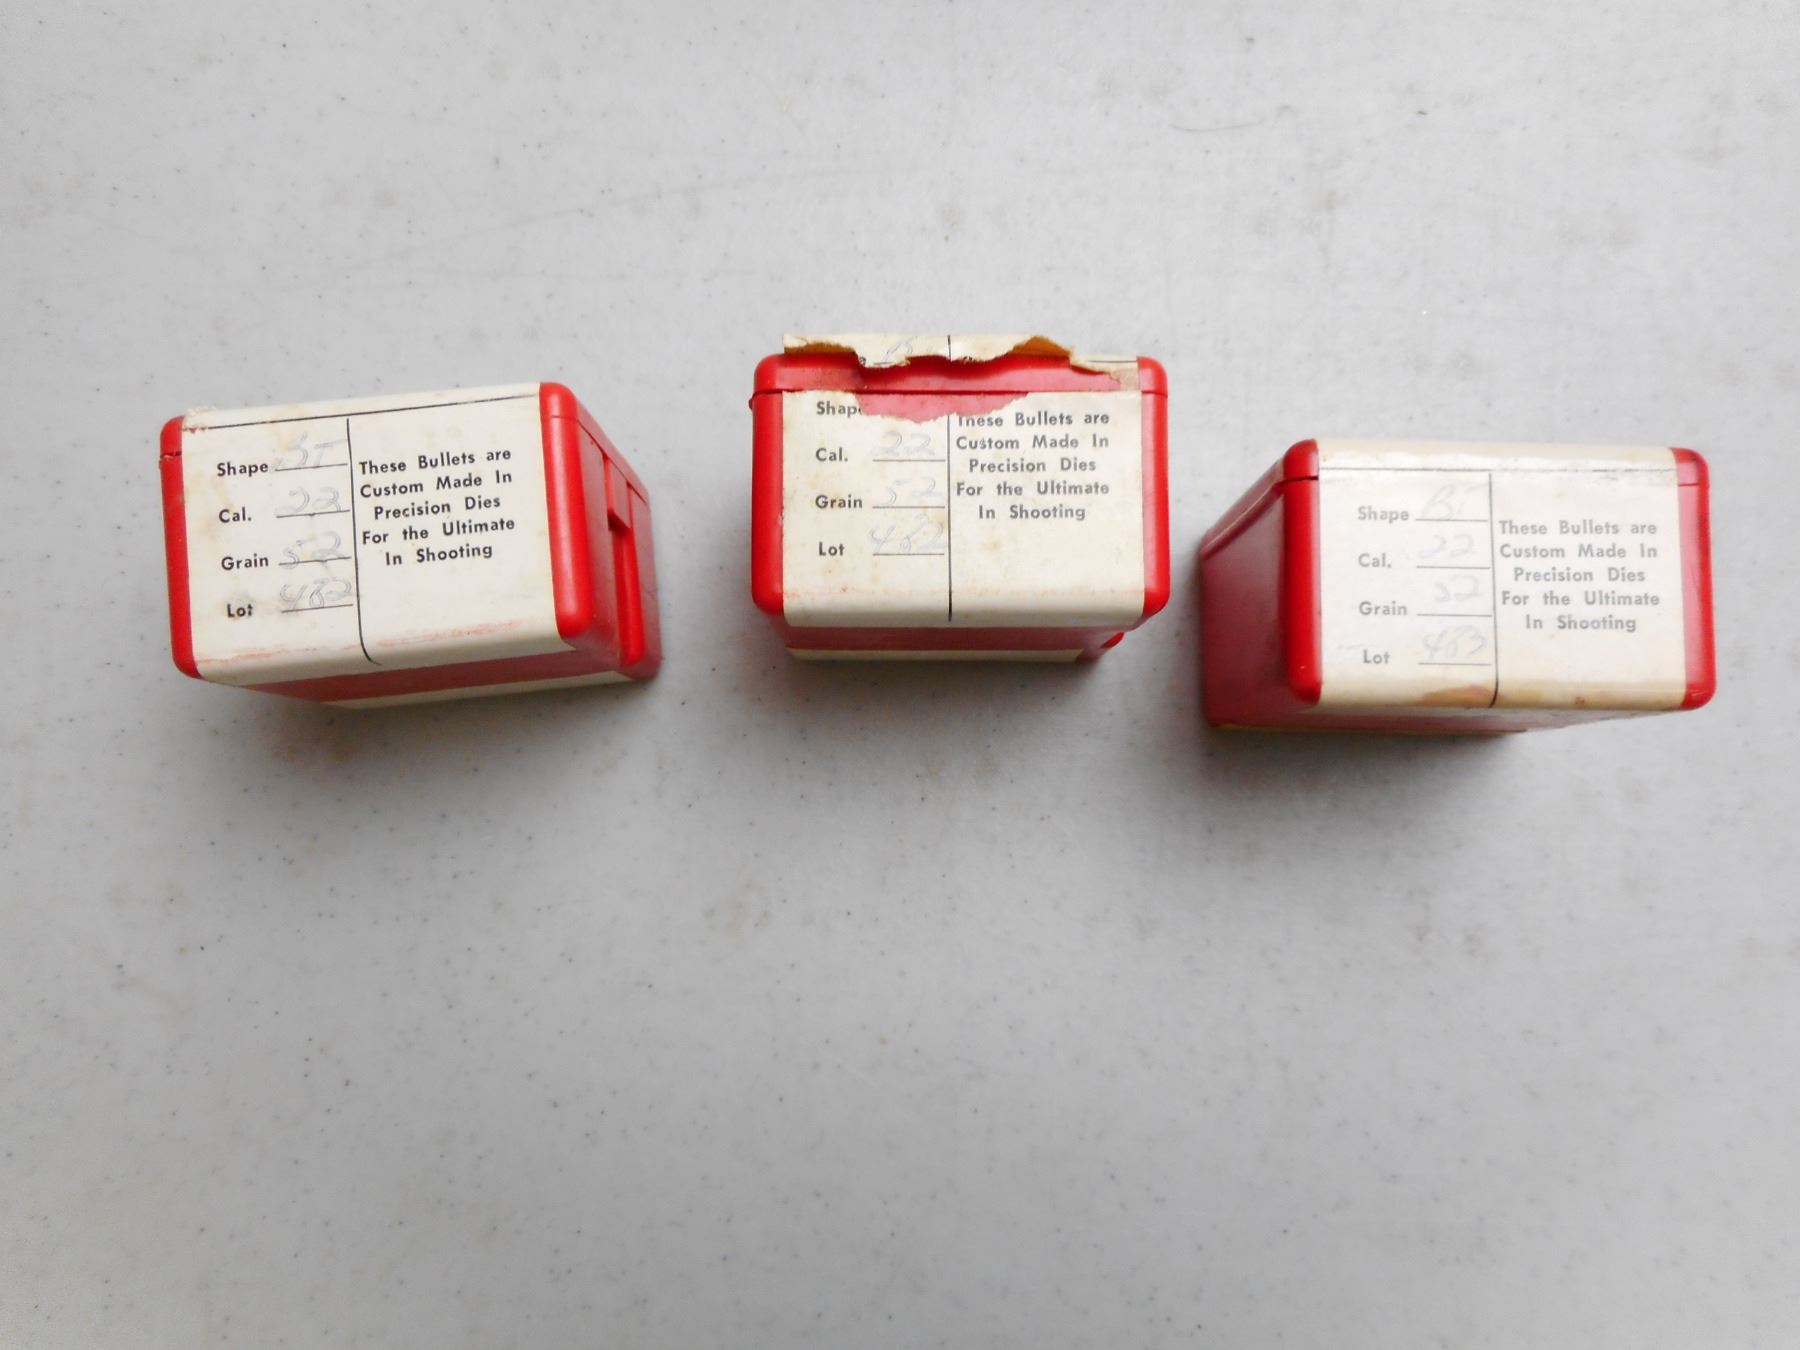 Shape BT
Cal. 22
Grain 52
Lot 482
These Bullets are
Custom Made In
Precision Dies
For the Ultimate
In Shooting
Shape
Cal. 22
Grain 52
Lot 482
These Bullets are
Custom Made In
Precision Dies
For the Ultimate
In Shooting
Shape BT
Cal. 22
Grain 52
Lot 483
These Bullets are
Custom Made In
Precision Dies
For the Ultimate
In Shooting